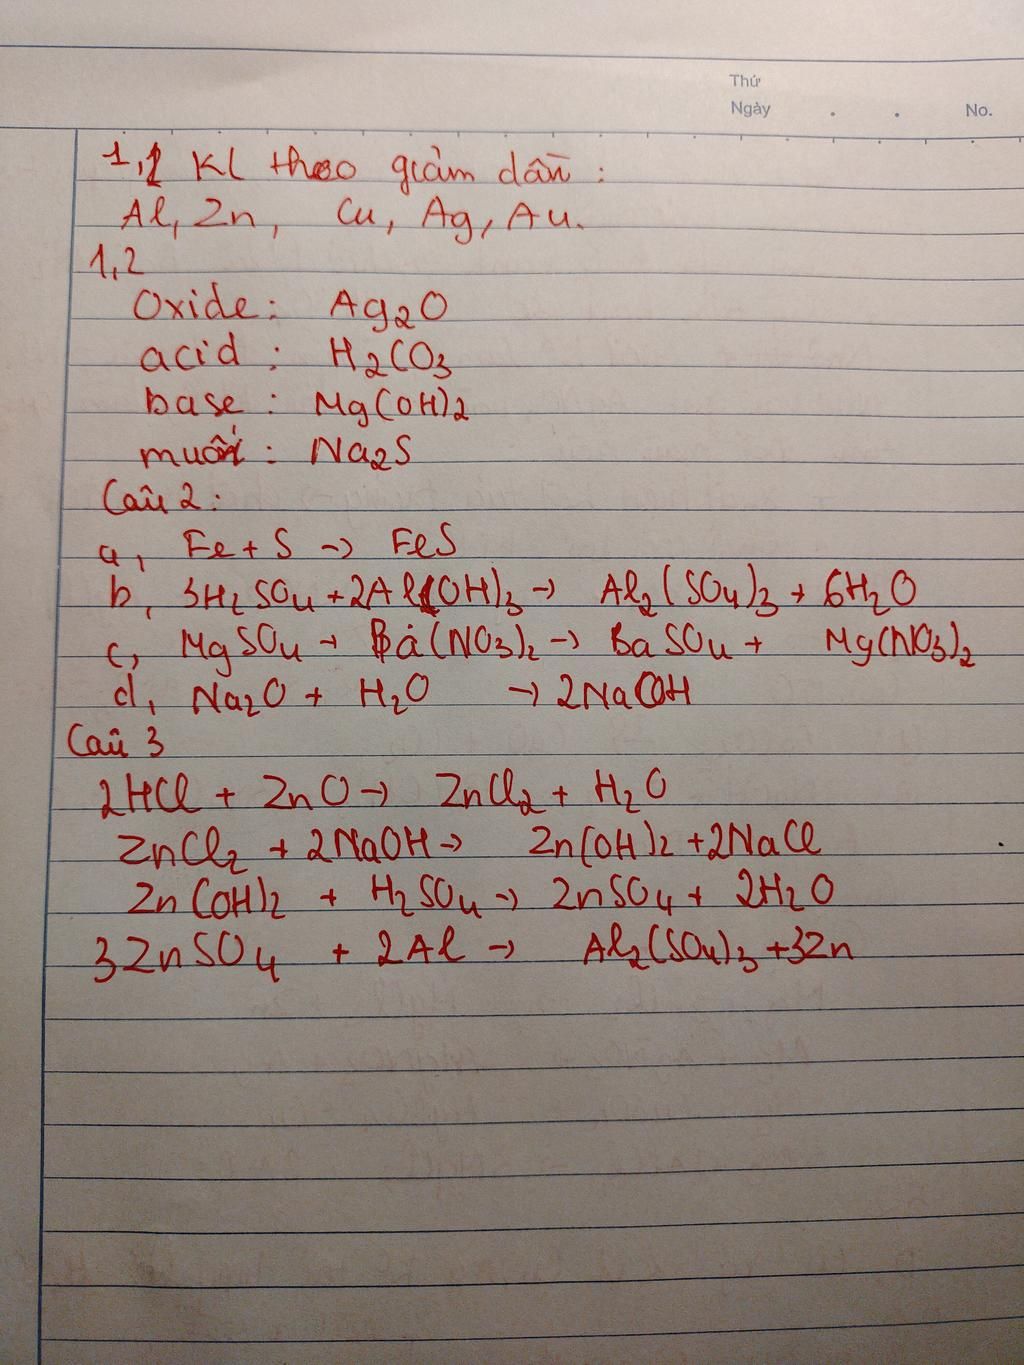 Thứ
Ngày . . No.
1,1 KL theo giảm dần :
Al, Zn, Cu, Ag, Au.
1,2
Oxide : Ag2O
acid : H2CO3
base : Mg(OH)2
muối : Na2S
Câu 2 :
a, Fe + S -> FeS
b, 3H2SO4 + 2Al(OH)3 -> Al2(SO4)3 + 6H2O
c, MgSO4 + Ba(NO3)2 -> BaSO4 + Mg(NO3)2
d, Na2O + H2O -> 2NaOH
Câu 3
2HCl + ZnO -> ZnCl2 + H2O
ZnCl2 + 2NaOH -> Zn(OH)2 + 2NaCl
Zn(OH)2 + H2SO4 -> ZnSO4 + 2H2O
3ZnSO4 + 2Al -> Al2(SO4)3 + 3Zn